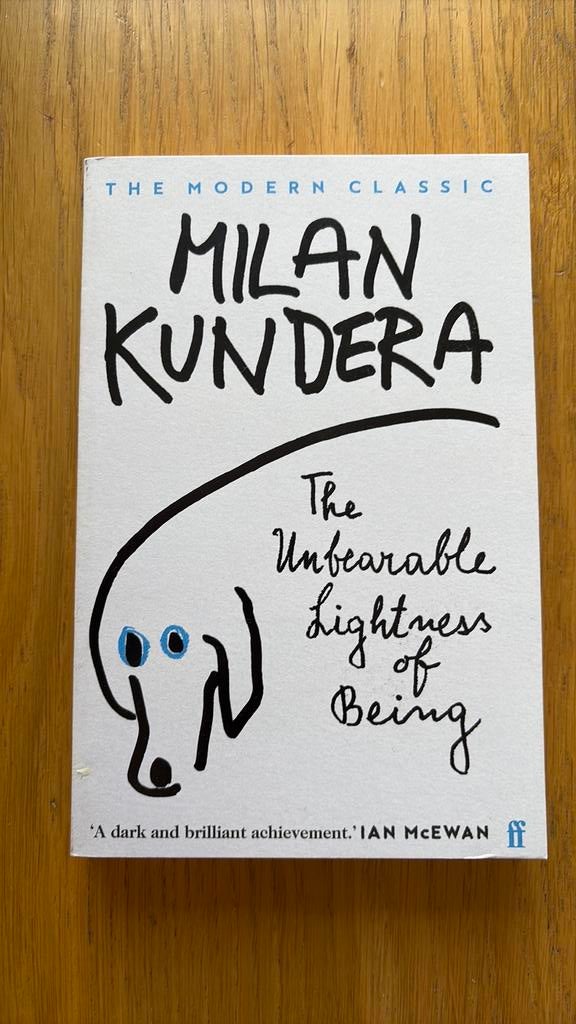 THE MODERN CLASSIC
MILAN
KUNDERA
The
Unbearable
Lightness
of
Being
‘A dark and brilliant achievement.’ IAN McEWAN ff